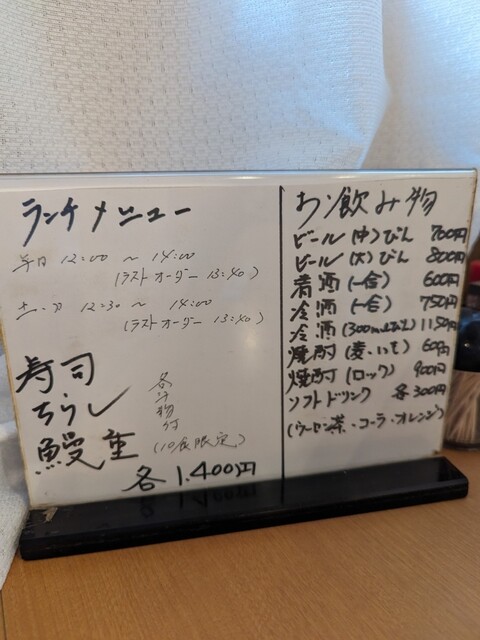 ランチメニュー
平日 12:00 ～ 14:00
(ラストオーダー 13:40)
土.日 12:30 ～ 14:00
(ラストオーダー 13:40)
寿司
ちらし
鰻重
各汁物付
(10食限定)
各 1.400円
お飲み物
ビール (中) びん 700円
ビール (大) びん 800円
清酒 (一合) 600円
冷酒 (一合) 750円
冷酒 (300mlびん) 1150円
焼酎 (麦.いも) 600円
焼酎 (ロック) 900円
ソフトドリンク 各300円
(ウーロン茶・コーラ・オレンジ)